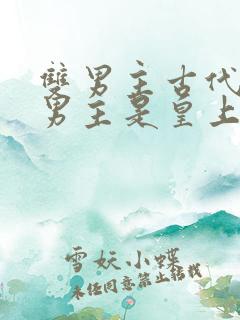 雙男主古代
男主是皇上
雪妖小蝶
未经同意禁止搭载